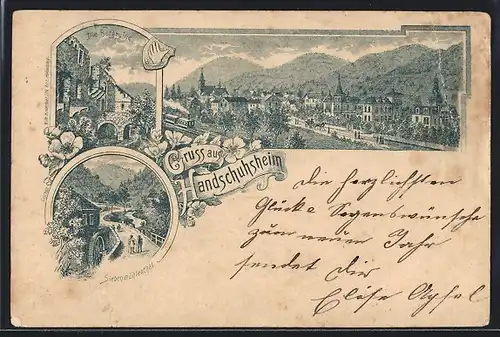 Die Burgruine
Gruss aus
Handschuhsheim
Siebenmühlenthal
Die herzlichsten
Glück & Segenswünsche
zum neuen Jahr
sendet Dir
Elise Apfel